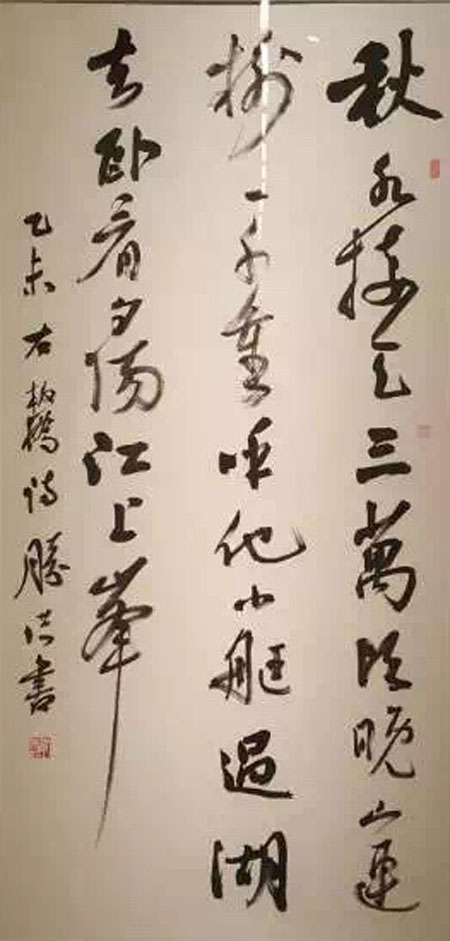 秋水接天三萬頃晚山連
樹一千重呼他小艇過湖
去卧看夕陽江上峯
乙未右板橋詩勝書